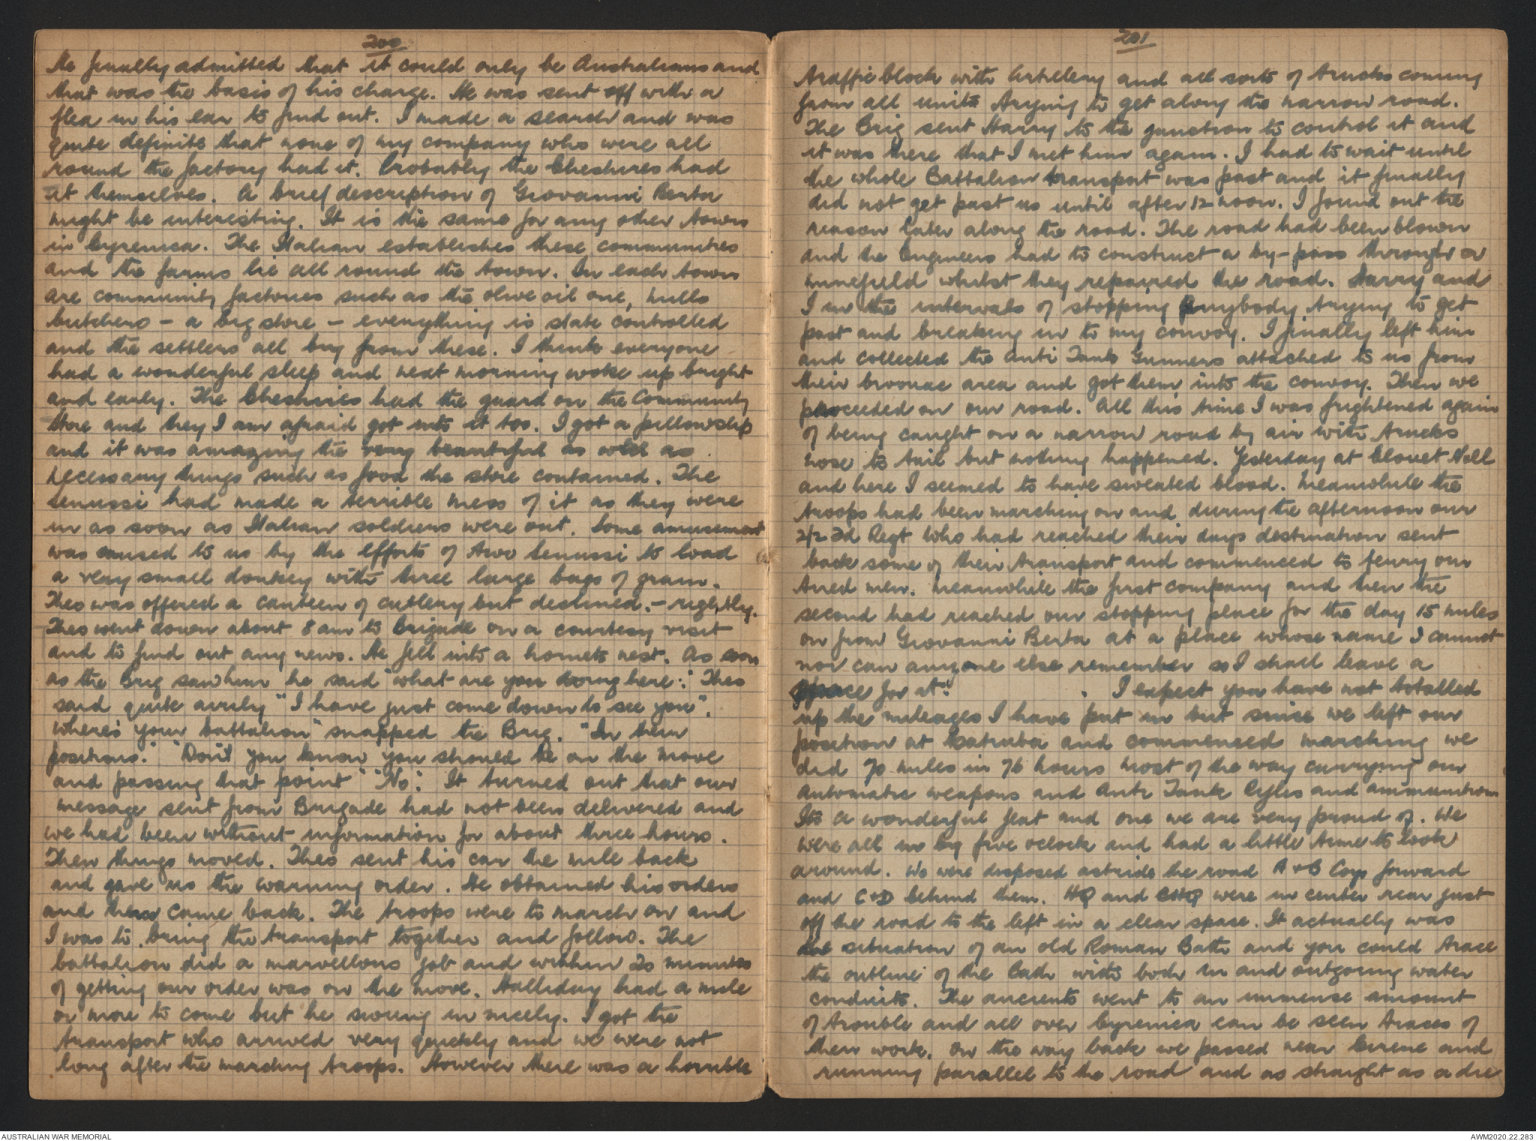 200
He finally admitted that it could only be Australians and
that was the basis of his charge. He was sent off with a
flea in his ear to find out. I made a search and was
quite definite that none of my company who were all
round the factory had it. Probably the Cheshires had
it themselves. A brief description of Giovanni Berta
might be interesting. It is the same for any other towns
in Cyrenica. The Italian establishes these communities
and the farms lie all round the town. In each town
are community factories such as the olive oil one, mills
butchers - a big store - everything is state controlled
and the settlers all buy from these. I think everyone
had a wonderful sleep and next morning woke up bright
and early. The Cheshires had the guard on the Community
store and they I am afraid got into it too. I got a pillowslip
and it was amazing the very beautiful as well as
necessary things such as food the store contained. The
Senussi had made a terrible mess of it as they were
in as soon as Italian soldiers were out. Some amusement
was caused to us by the efforts of two Senussi to load
a very small donkey with three large bags of grain.
Theo was offered a canteen of cutlery but declined. - rightly.
Theo went down about 8 am to Brigade on a courtesy visit
and to find out any news. He fell into a hornets nest. As soon
as the Brig saw him he said "what are you doing here": Theo
said quite airily "I have just come down to see you".
"Where's your battalion" snapped the Brig. "In their
positions." "Don't you know you should be on the move
and passing that point" "No". It turned out that our
message sent from Brigade had not been delivered and
we had been without information for about three hours.
Then things moved. Theo sent his car the mile back
and gave us the warning order. He obtained his orders
and then came back. The troops were to march on and
I was to bring the transport together and follow. The
battalion did a marvellous job and within 20 minutes
of getting our order was on the move. Halliday had a mile
or more to come but he swung in nicely. I got the
transport who arrived very quickly and we were not
long after the marching troops. However there was a horrible
201
traffic block with Artillery and all sorts of trucks coming
from all units trying to get along the narrow road.
The Brig sent Harry to the junction to control it and
it was there that I met him again. I had to wait until
the whole Battalion transport was past and it finally
did not get past us until after 12 noon. I found out the
reason later along the road. The road had been blown
and the Engineers had to construct a by-pass through a
minefield whilst they repaired the road. Harry and
I in the intervals of stopping anybody trying to get
past and breaking in to my convoy. I finally left him
and collected the Anti Tank Gunners attached to us from
their bivouac area and got them into the convoy. Then we
proceeded on our road. All this time I was frightened again
of being caught on a narrow road by air with trucks
nose to tail but nothing happened. Yesterday at
and here I seemed to have sweated blood. Meanwhile the
troops had been marching on and during the afternoon our
2/2 Fd Regt who had reached their days destination sent
back some of their transport and commenced to ferry our
tired men. Meanwhile the first company and then the
second had reached our stopping place for the day 15 miles
on from Giovanni Berta at a place whose name I cannot
nor can anyone else remember so I shall leave a
space for it! . I expect you have not totalled
up the mileages I have put in but since we left our
position at and commenced marching we
did 70 miles in 76 hours most of the way carrying our
automatic weapons and Anti Tank Rifles and ammunition
Its a wonderful feat and one we are very proud of. We
were all in by five oclock and had a little time to look
around. We were disposed astride the road A & B Coys forward
and C & D behind them. HQ and were in center rear just
off the road to the left in a clear space. It actually was
the situation of an old Roman Bath and you could trace
the outline of the bath with both in and outgoing water
conduits. The ancients went to an immense amount
of trouble and all over Cyrenica can be seen traces of
their work. On the way back we passed near Cirene and
running parallel to the road and as straight as a die
AUSTRALIAN WAR MEMORIAL
AWM2020.22.263